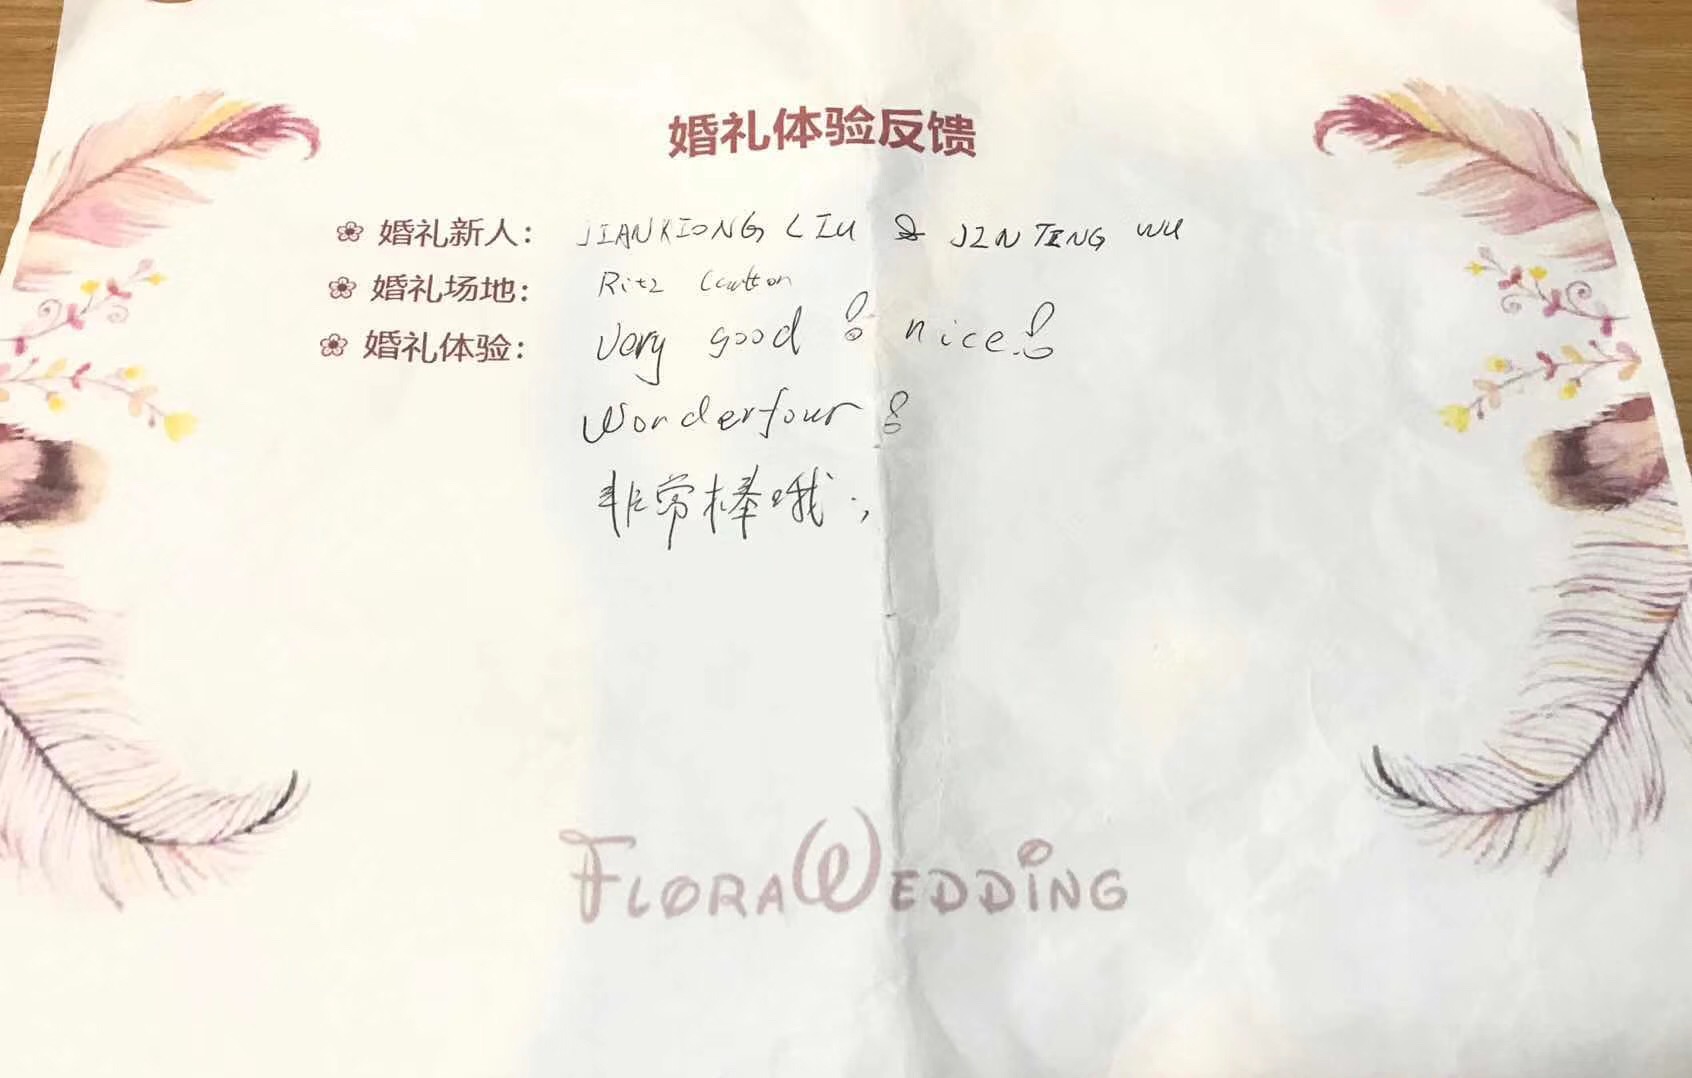 婚礼体验反馈
婚礼新人： JIANXIONG LIU & JINTING WU
婚礼场地： Ritz Carlton
婚礼体验： Very good ! nice !
Wonderfour !
非常棒哦；
FLORA WEDDING